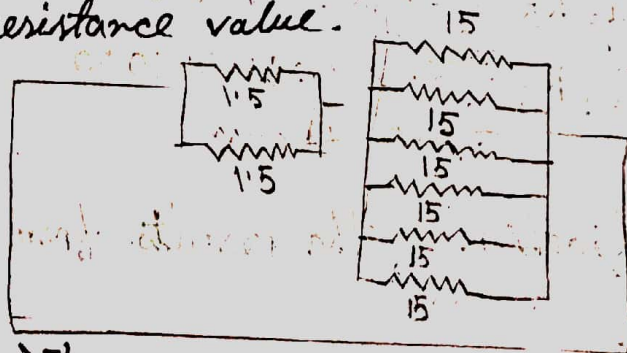 esistance value.
15
1.5
15
1.5
15
15
15
15